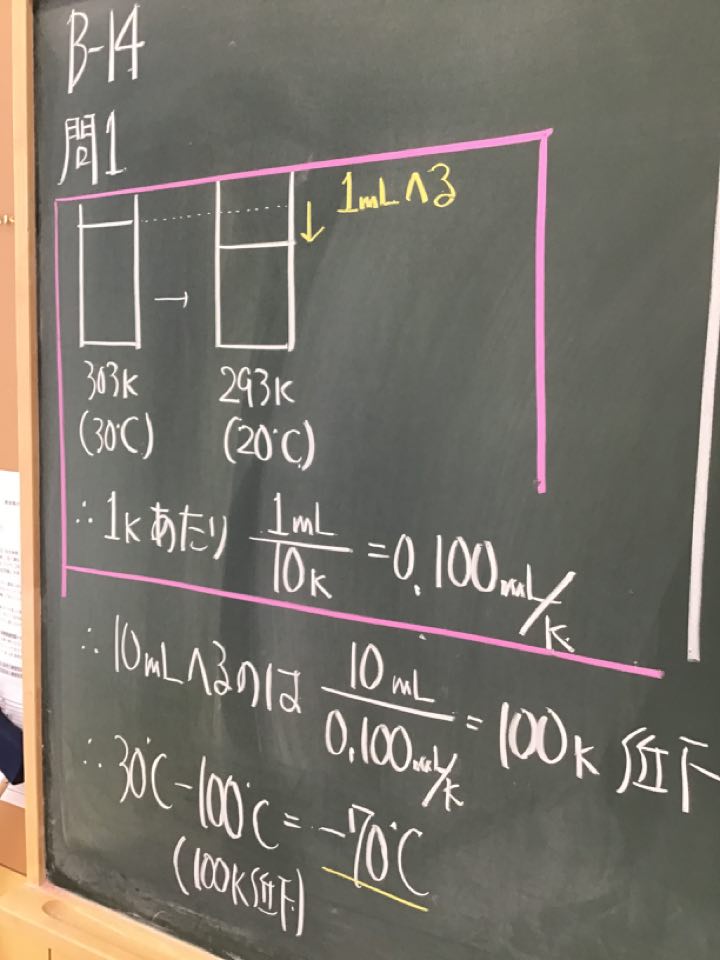 B-14
問1
1mLへる
303K
(30℃)
293K
(20℃)
∴1Kあたり 1mL/10K = 0.100mL/K
∴10mLへるのは 10mL/0.100mL/K = 100K低下
∴30℃-100℃=-70℃
(100K低下)